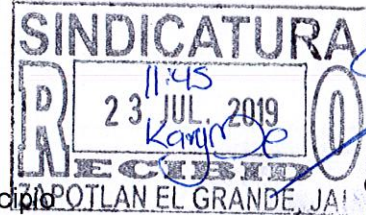 SINDICATURA
11:45
23 JUL. 2019
Karyme
RECIBIDO
cipio
ZAPOTLAN EL GRANDE, JAL